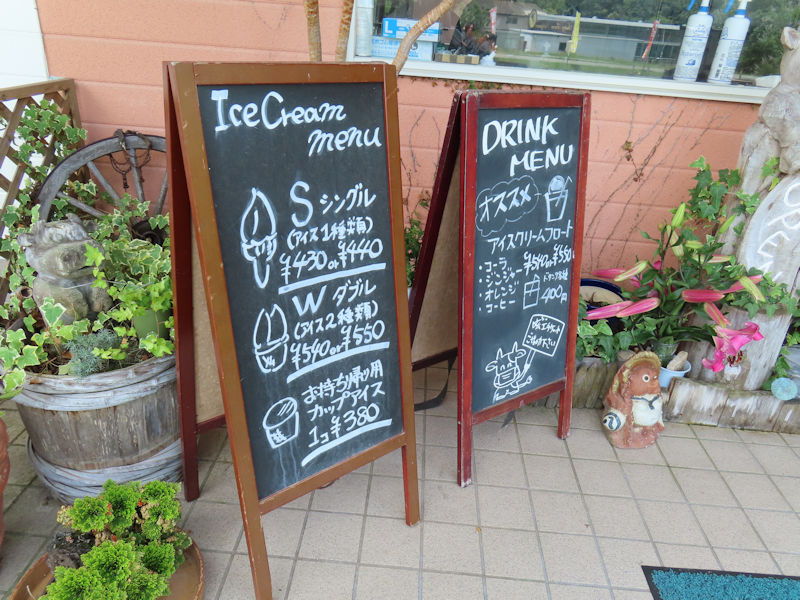 Ice Cream
menu
S シングル
(アイス1種類)
¥430 or ¥440
W ダブル
(アイス2種類)
¥540 or ¥550
お持ち帰り用
カップアイス
1コ ¥380
DRINK
MENU
オススメ
アイスクリームフロート
・コーラ ¥540 or ¥550
・ジンジャー
・オレンジ
・コーヒー
400円
OPEN